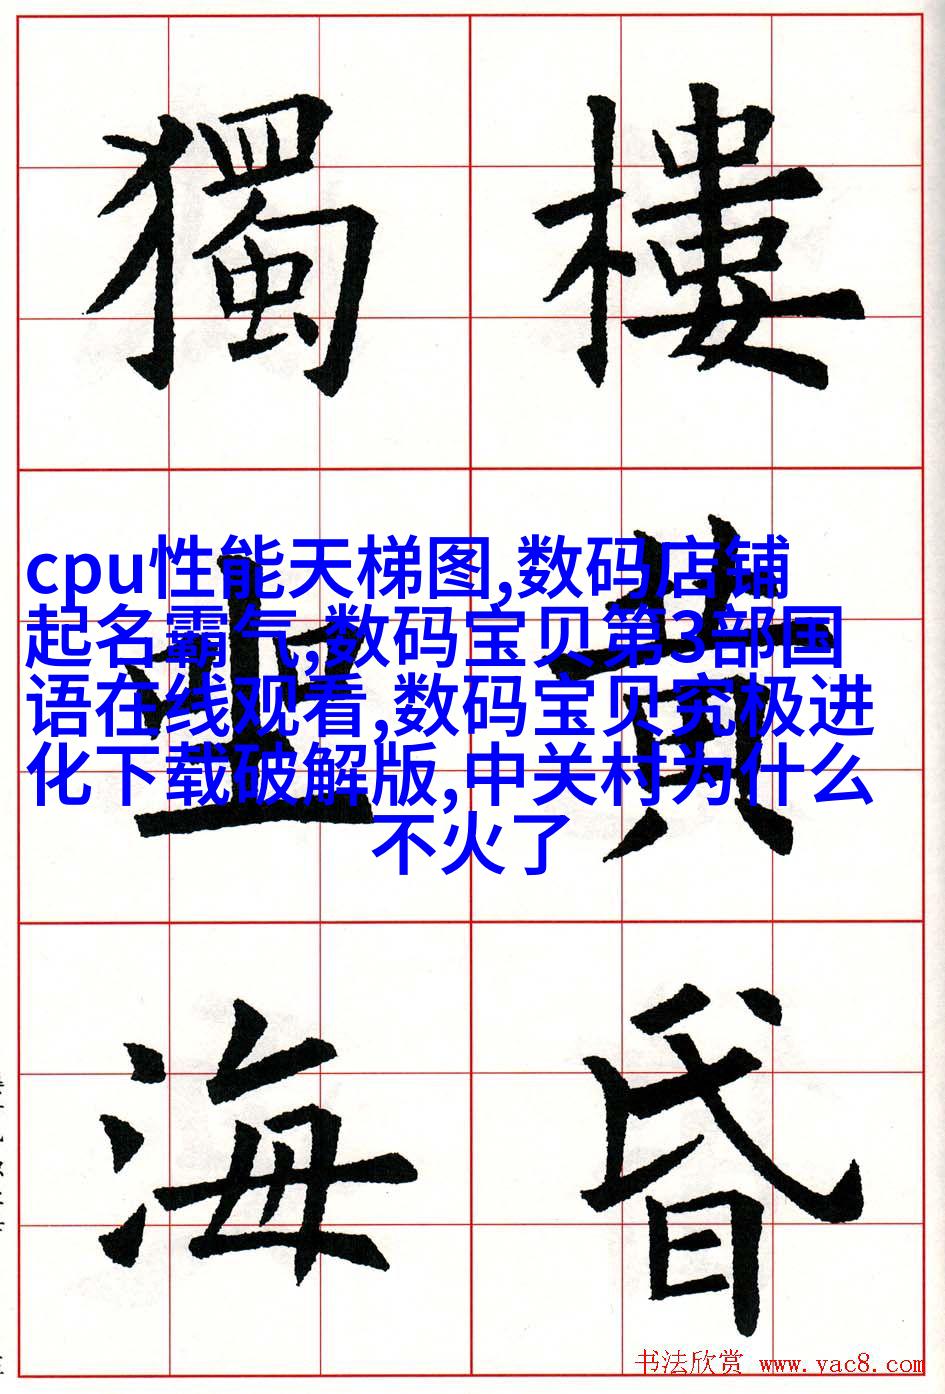 樓黃昏
獨海
cpu性能天梯图,数码店铺
起名霸气,数码宝贝第3部国
语在线观看,数码宝贝究极进
化下载破解版,中关村为什么
不火了
书法欣赏 www.yac8.com